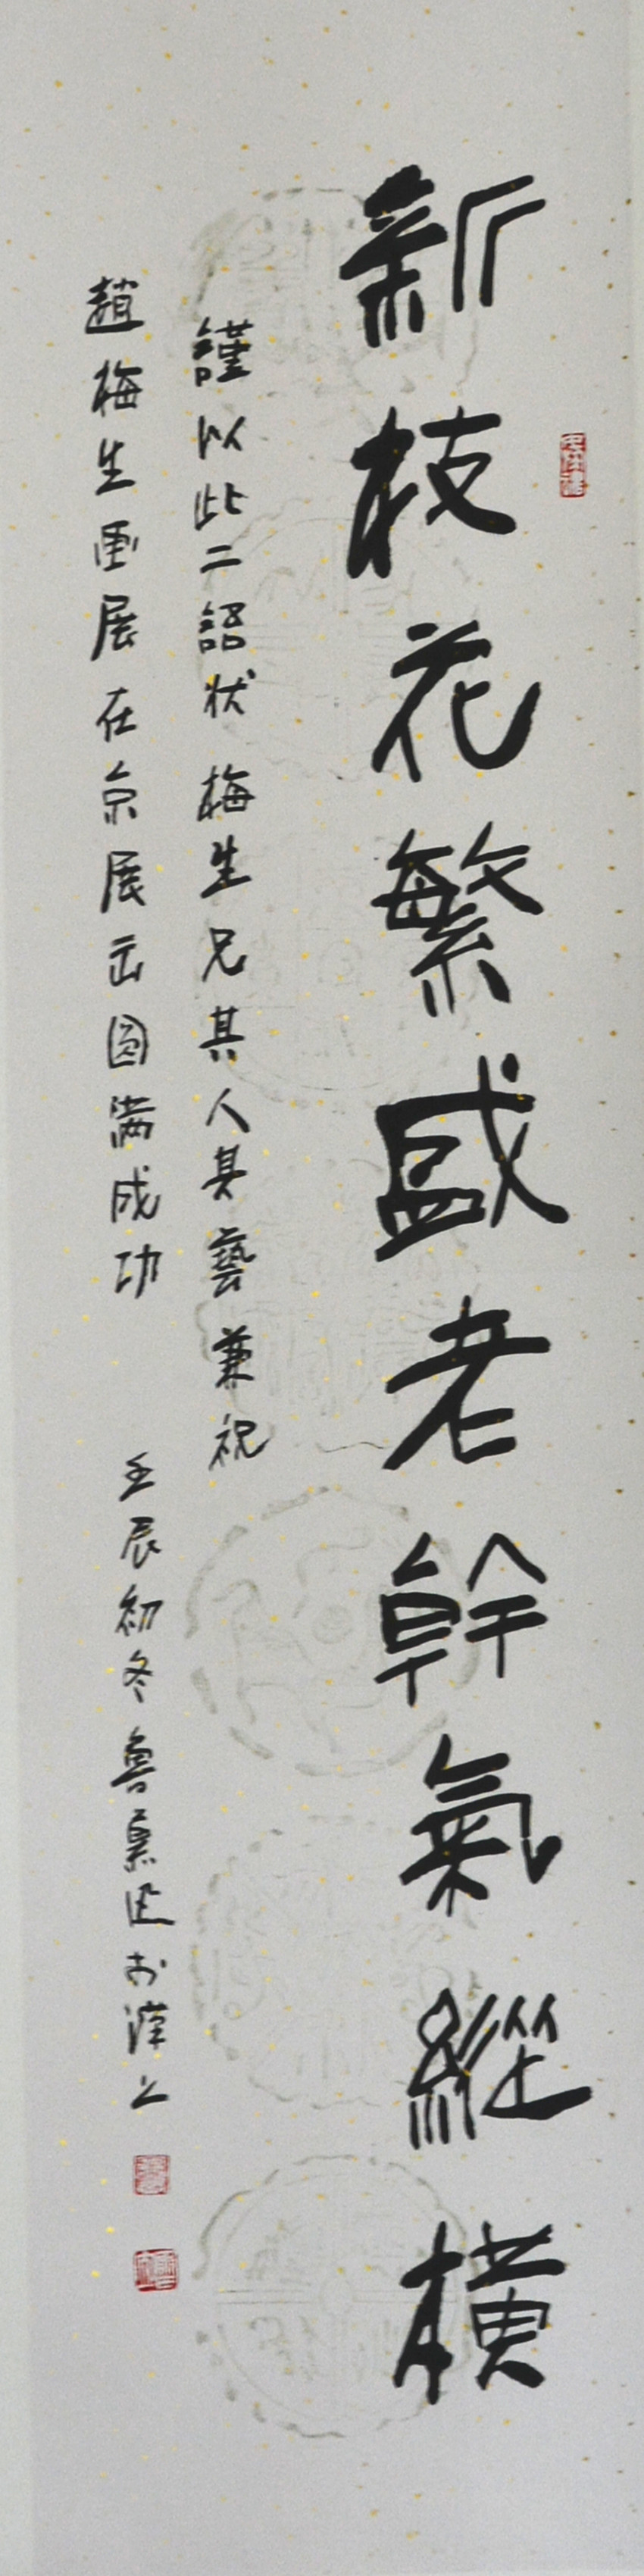 新枝花繁盛老幹氣縱橫
謹以此二語状梅生兄其人其藝兼祝
趙梅生画展在京展出圆满成功
壬辰初冬魯慕迅於漢上